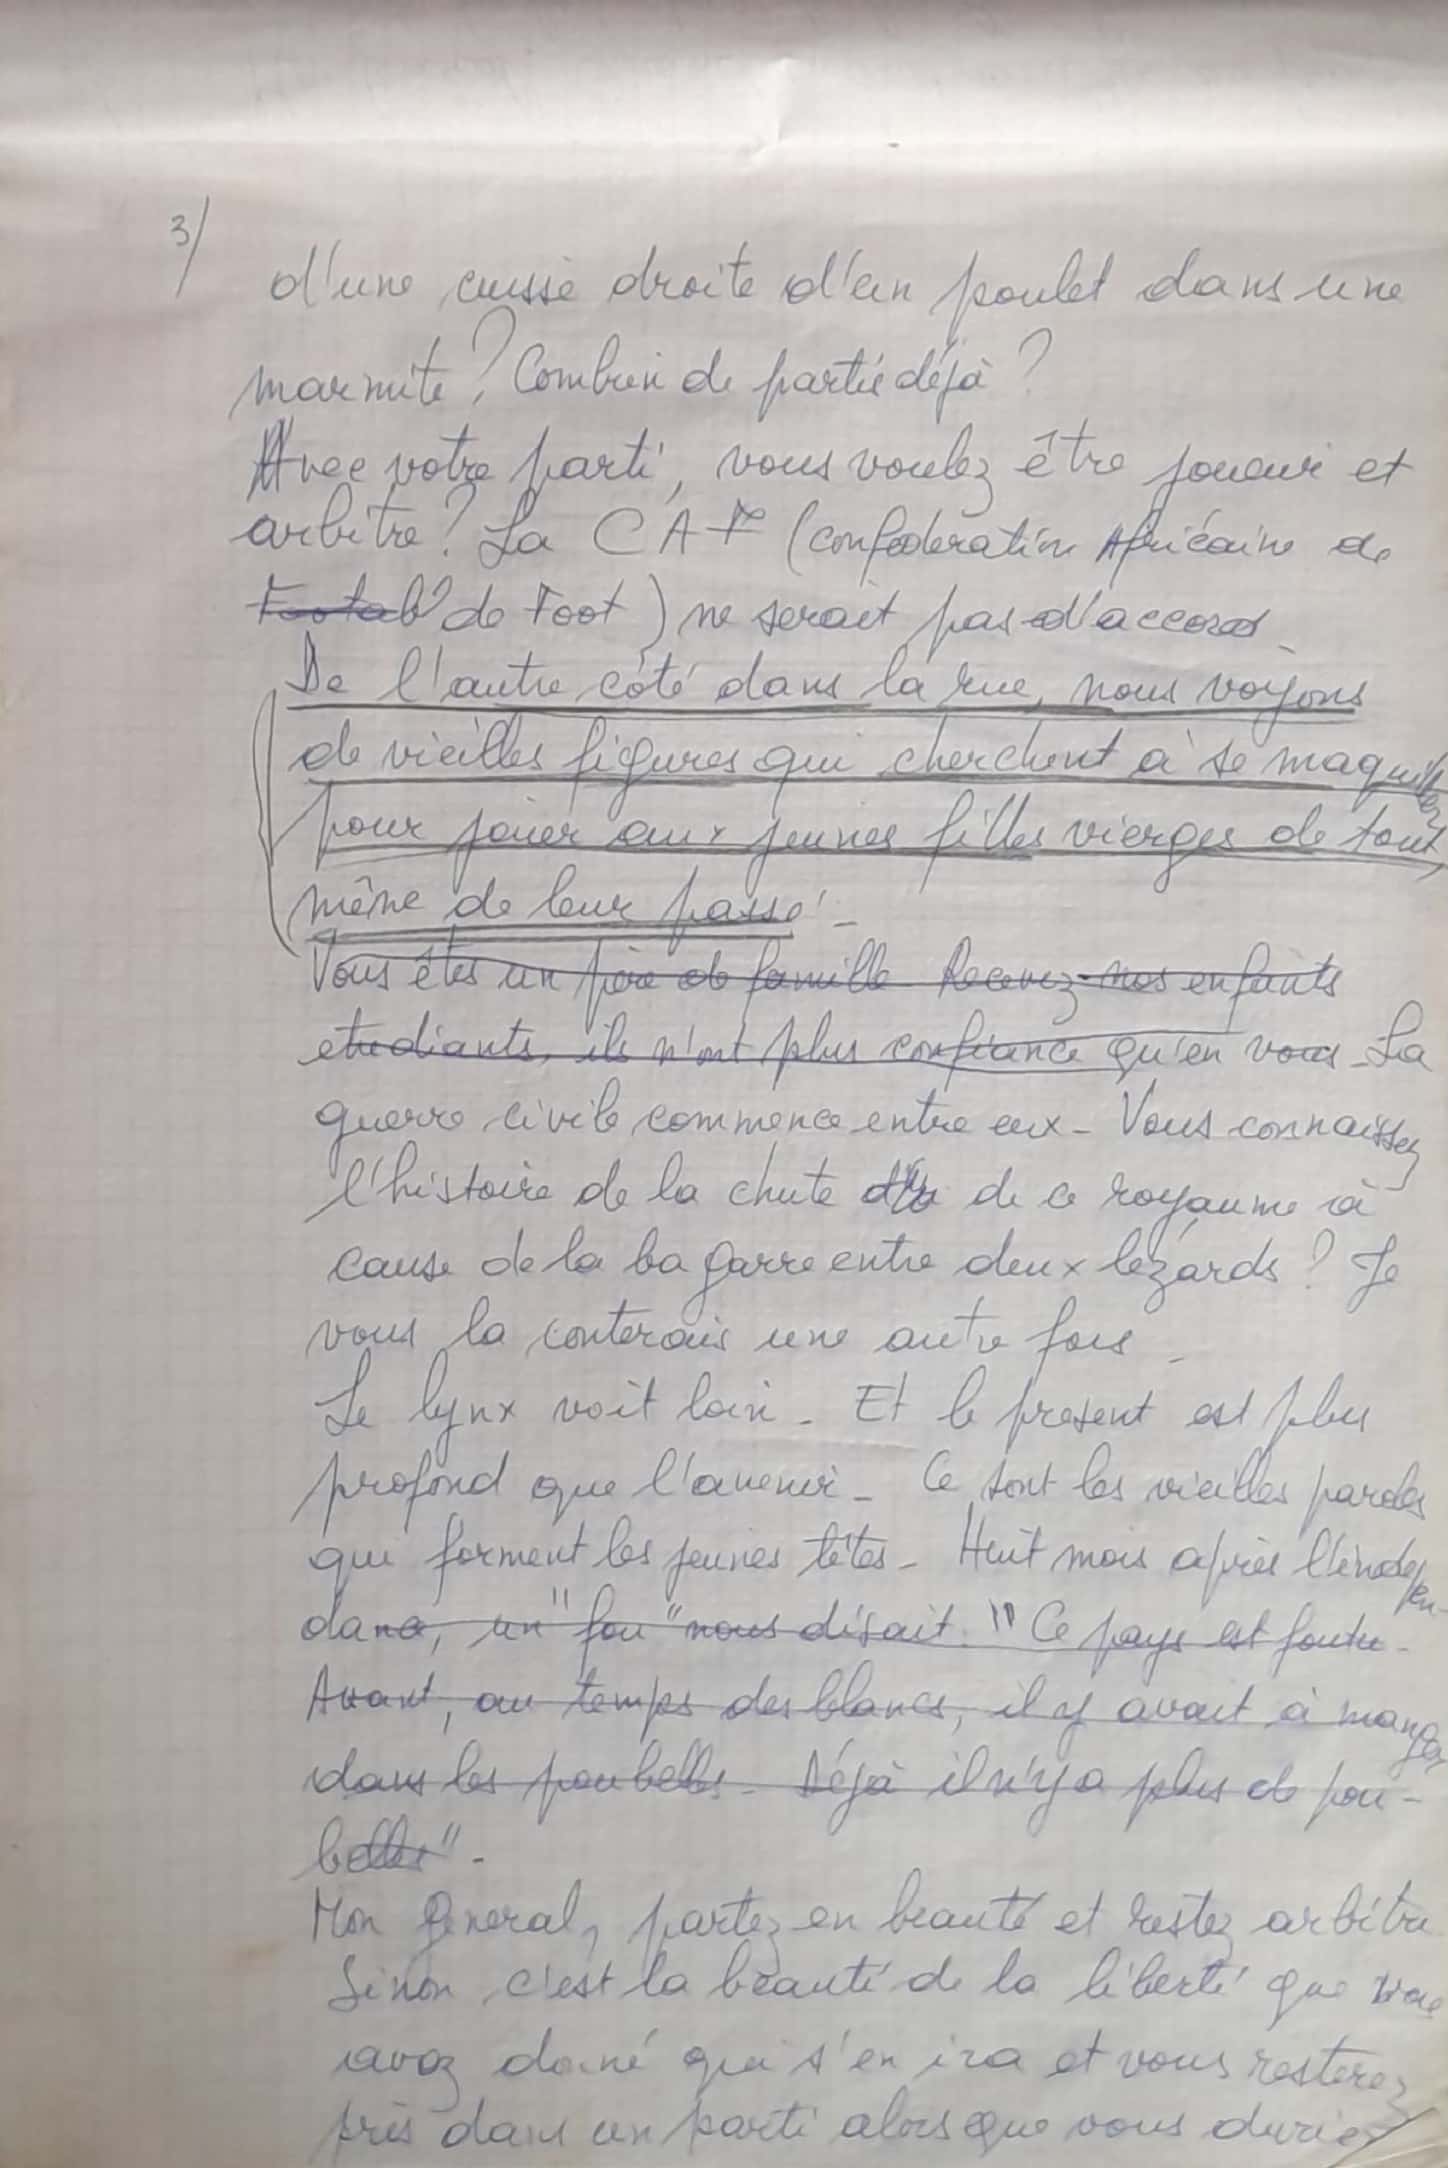 3/
d'une cuisse droite d'un poulet dans une
marmite ? Combien de partis déjà ?
Avec votre parti, vous voulez être joueur et
arbitre ? La CAF (confederation Africaine de
Footab de Foot) ne serait pas d'accord.
De l'autre côté dans la rue, nous voyons
de vieilles figures qui cherchent à se maquiller
pour jouer aux jeunes filles vierges de tout,
même de leur passé.
Vous êtes un père de famille. Recevez nos enfants
etudiants, ils n'ont plus confiance qu'en vous. La
guerre civile commence entre eux. Vous connaissez
l'histoire de la chute de ce royaume à
cause de la bagarre entre deux lezards ? Je
vous la conterais une autre fois.
Le lynx voit loin. Et le present est plus
profond que l'avenir. Ce sont les vieilles paroles
qui forment les jeunes têtes. Huit mois après l'indépen-
dance, un "fou" nous disait : "Ce pays est foutu.
Avant, au temps des blancs, il y avait à manger
dans les poubelles. Déjà il n'y a plus de pou-
belles".
Mon General, partez en beauté et restez arbitre
Sinon c'est la beauté de la liberté que vous
avez donné qui s'en ira et vous resterez
pris dans un parti alors que vous